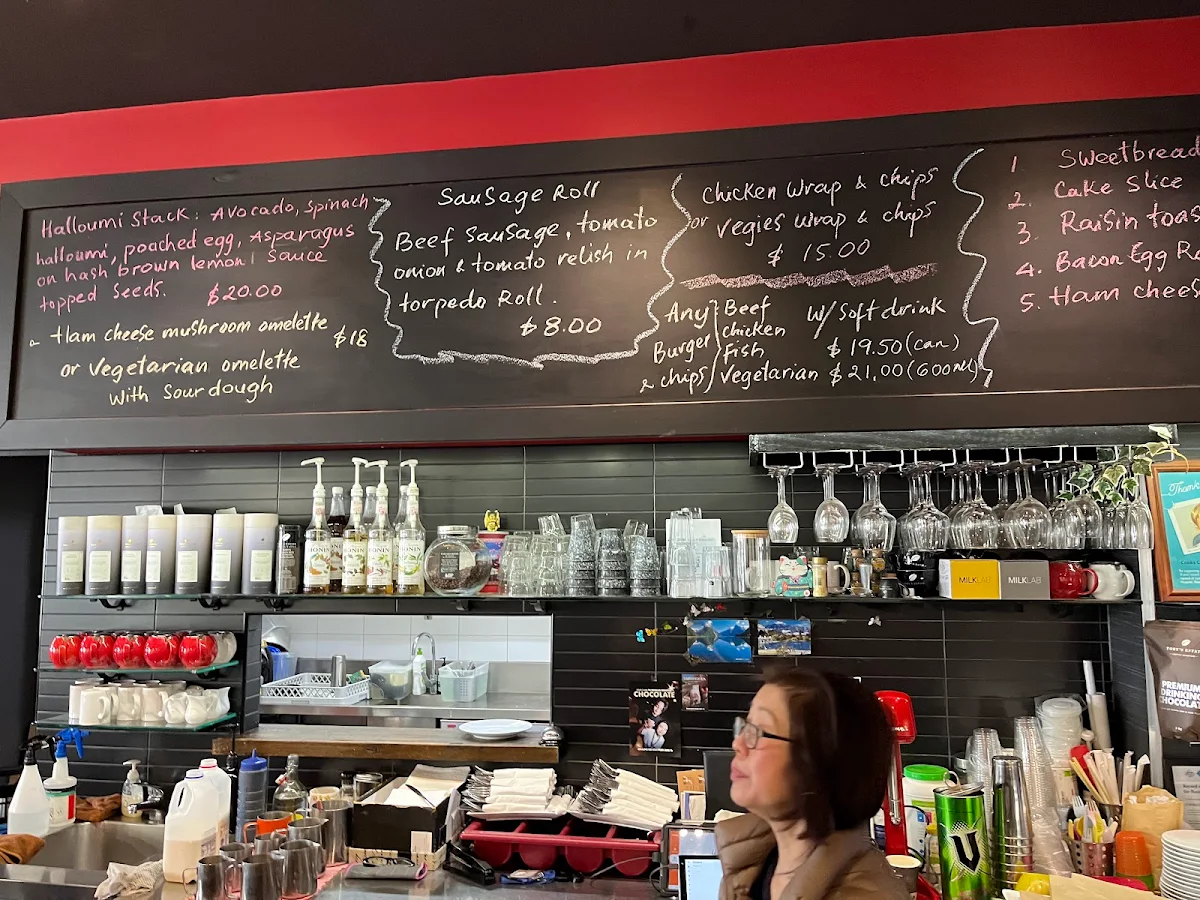 Halloumi Stack: Avocado, spinach
halloumi, poached egg, Asparagus
on hash brown lemon sauce
topped seeds. $20.00
Ham cheese mushroom omelette $18
or Vegetarian omelette
with sourdough
Sausage Roll
Beef Sausage, tomato
onion & tomato relish in
torpedo Roll.
$8.00
Chicken Wrap & chips
or vegies wrap & chips
$ 15.00
Any Burger & chips
Beef
chicken
Fish
Vegetarian
w/ Soft drink
$ 19.50 (can)
$ 21.00 (600ml)
1 Sweetbread
2. Cake Slice
3. Raisin toas
4. Bacon Egg Ro
5. Ham chees
MONIN
MONIN
MONIN
MONIN
MILKLAB
MILKLAB
Thank
CHOCOLATE
TOBY'S ESTATE
PREMIUM
DRINKING
CHOCOLATE
V